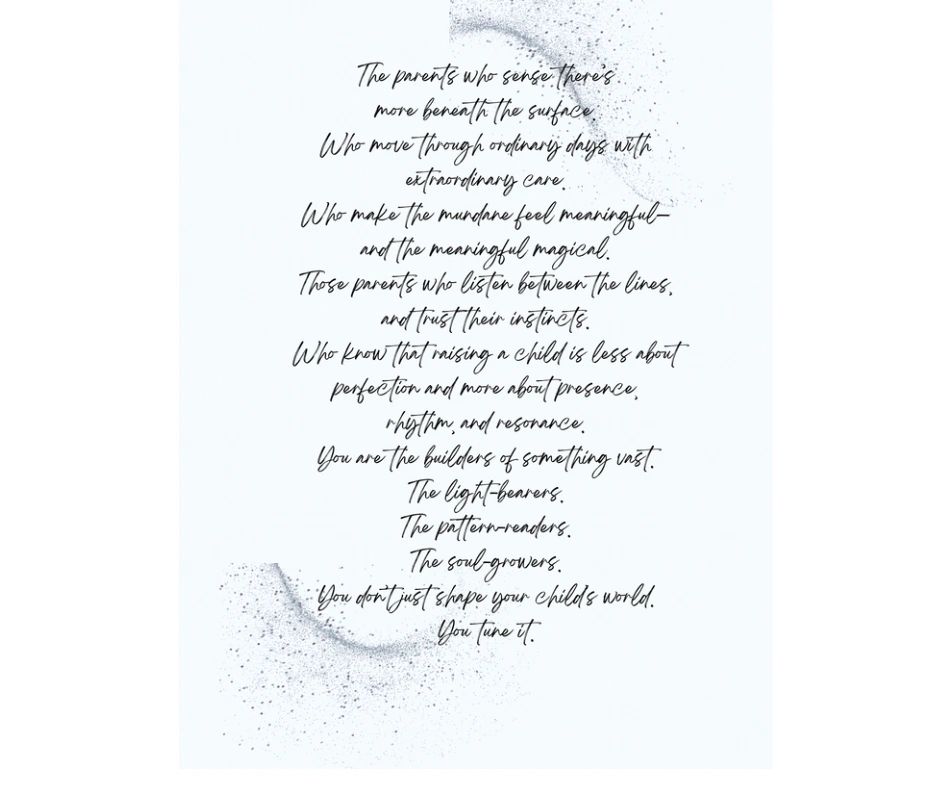 The parents who sense there's
more beneath the surface.
Who move through ordinary days with
extraordinary care.
Who make the mundane feel meaningful—
and the meaningful magical.
Those parents who listen between the lines,
and trust their instincts.
Who know that raising a child is less about
perfection and more about presence,
rhythm, and resonance.
You are the builders of something vast.
The light-bearers.
The pattern-readers.
The soul-growers.
You don't just shape your child's world.
You tune it.